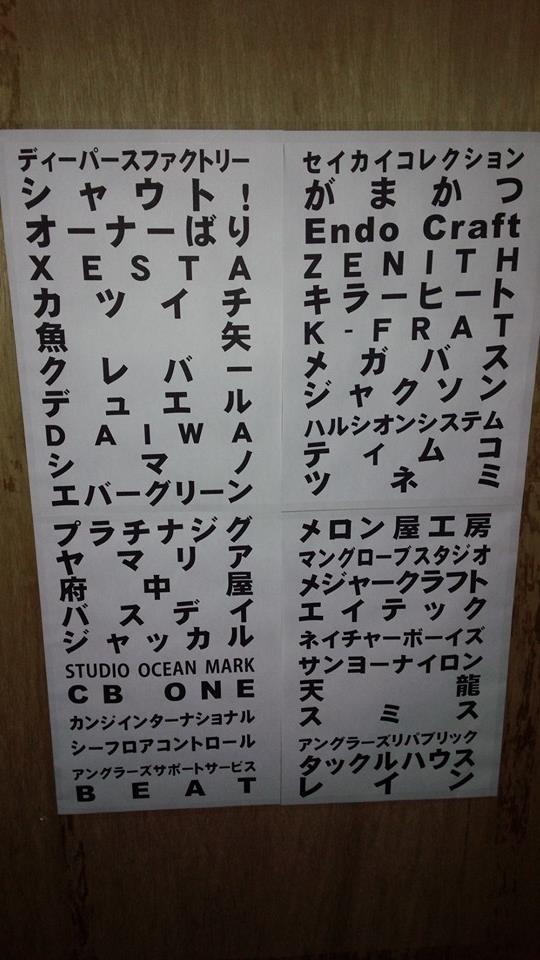 ディーパースファクトリー
シャウト！
オーナーばり
XESTA
カツイチ
魚矢
クレバー
デュエル
DAIWA
シマノ
エバーグリーン
プラチナジグ
ヤマリア
府中屋
バスデイ
ジャッカル
STUDIO OCEAN MARK
CB ONE
カンジインターナショナル
シーフロアコントロール
アングラーズサポートサービス
BEAT
セイカイコレクション
がまかつ
Endo Craft
ZENITH
キラーヒート
K-FRAT
メガバス
ジャクソン
ハルシオンシステム
ティムコ
ツネミ
メロン屋工房
マングローブスタジオ
メジャークラフト
エイテック
ネイチャーボーイズ
サンヨーナイロン
天龍
スミス
アングラーズリパブリック
タックルハウス
レイン